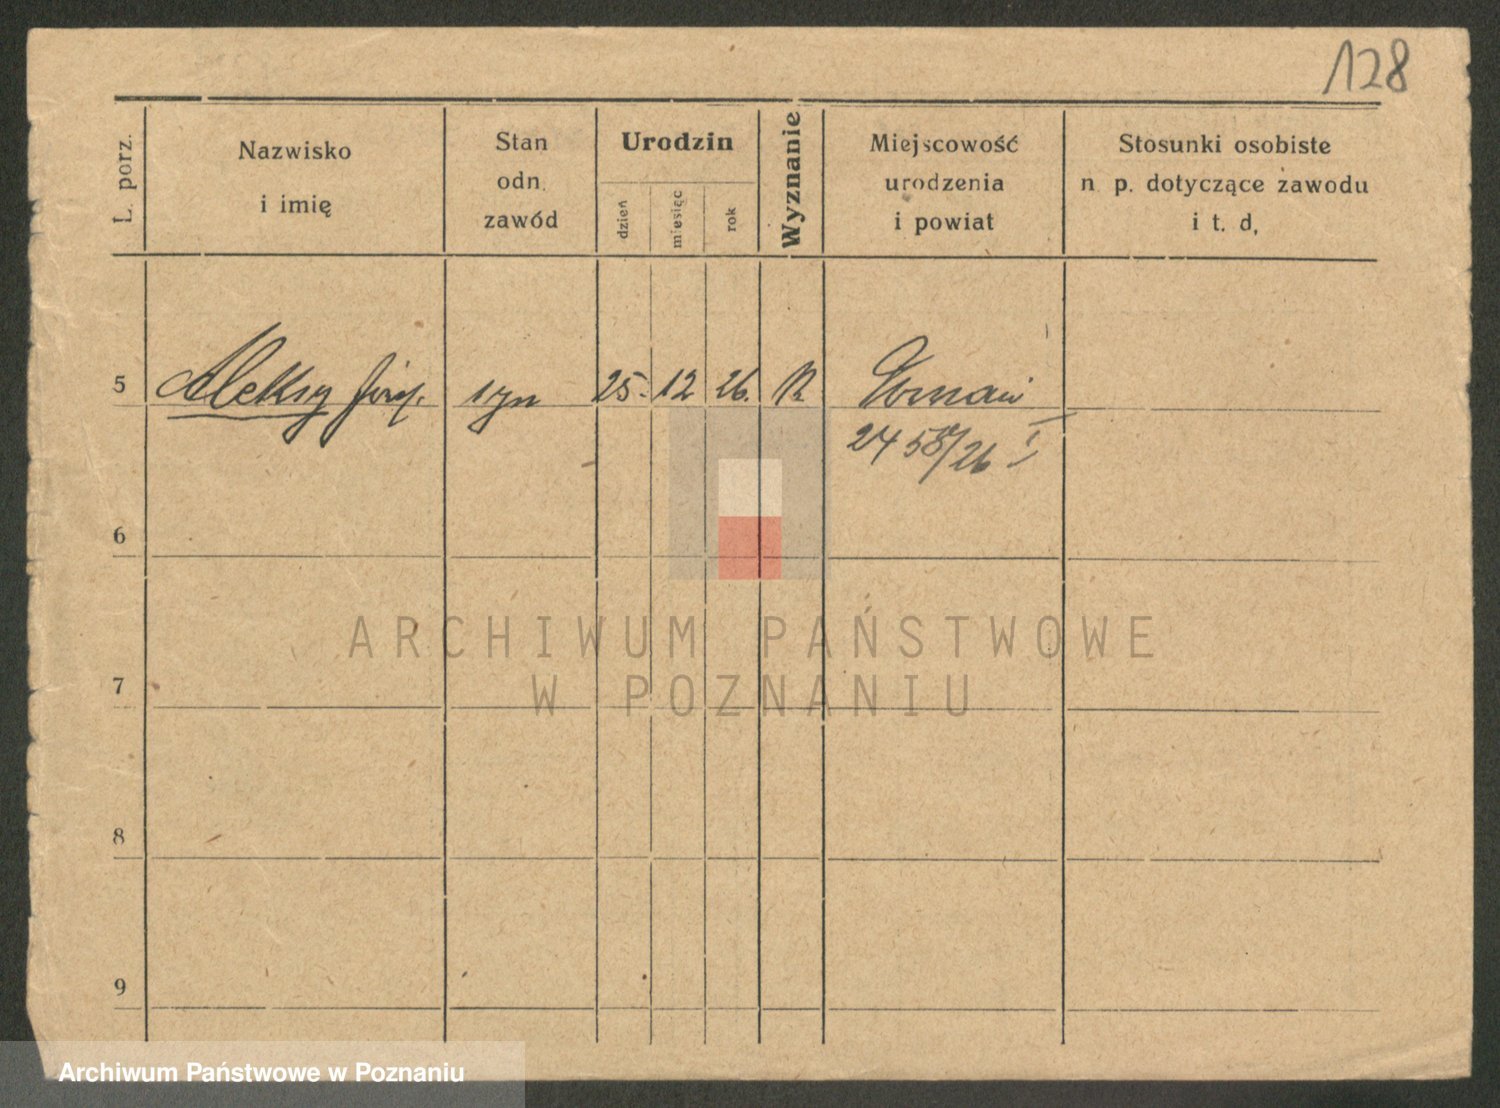 128
L. porz.
Nazwisko
i imię
Stan
odn.
zawód
Urodzin
dzień
miesiąc
rok
Wyznanie
Miejscowość
urodzenia
i powiat
Stosunki osobiste
n p. dotyczące zawodu
i t. d,
5 Aleksy syn 25. 12 26. R.
24 58/26 I
6
7
8
9
ARCHIWUM PAŃSTWOWE
W POZNANIU
Archiwum Państwowe w Poznaniu